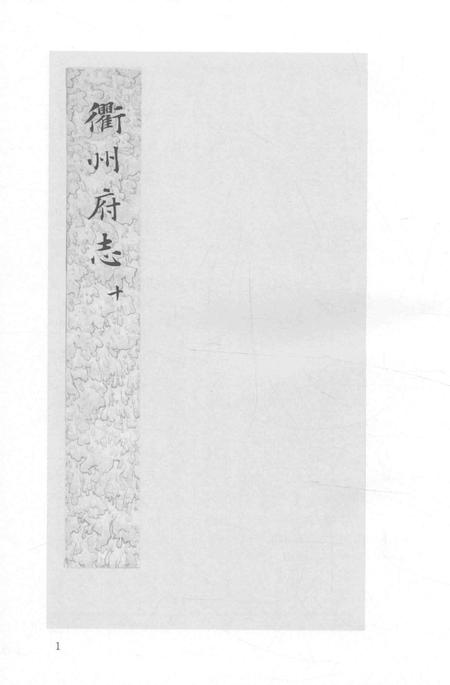 衢州府志 十
1